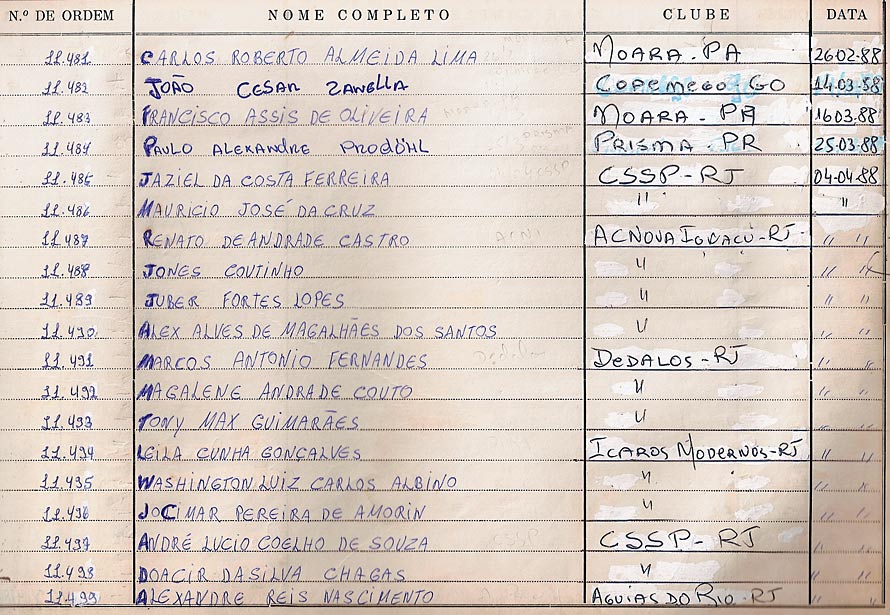 N.º DE ORDEM NOME COMPLETO CLUBE DATA
11.481 CARLOS ROBERTO ALMEIDA LIMA MOARA - PA 26-02-88
11.482 JOÃO CESAR ZANELLA COPEMEGO GO 14-03-88
11.483 FRANCISCO ASSIS DE OLIVEIRA MOARA - PA 16-03-88
11.484 PAULO ALEXANDRE PRODÖHL PRISMA - PR 25-03-88
11.485 JAZIEL DA COSTA FERREIRA CSSP - RJ 04-04-88
11.486 MAURICIO JOSÉ DA CRUZ " "
11.487 RENATO DE ANDRADE CASTRO AC NOVA IGUAÇU - RJ " "
11.488 JONES COUTINHO " " "
11.489 JUBER FORTES LOPES " " "
11.490 ALEX ALVES DE MAGALHÃES DOS SANTOS " " "
11.491 MARCOS ANTONIO FERNANDES DEDALOS - RJ " "
11.492 MAGALENE ANDRADE COUTO " " "
11.493 TONY MAX GUIMARÃES " " "
11.494 LEILA CUNHA GONÇALVES ICAROS MODERNOS - RJ " "
11.495 WASHINGTON LUIZ CARLOS ALBINO " " "
11.496 JOCIMAR PEREIRA DE AMORIN " " "
11.497 ANDRÉ LUCIO COELHO DE SOUZA CSSP - RJ " "
11.498 DOACIR DA SILVA CHAGAS " " "
11.499 ALEXANDRE REIS NASCIMENTO AGUIAS DO RIO - RJ " "